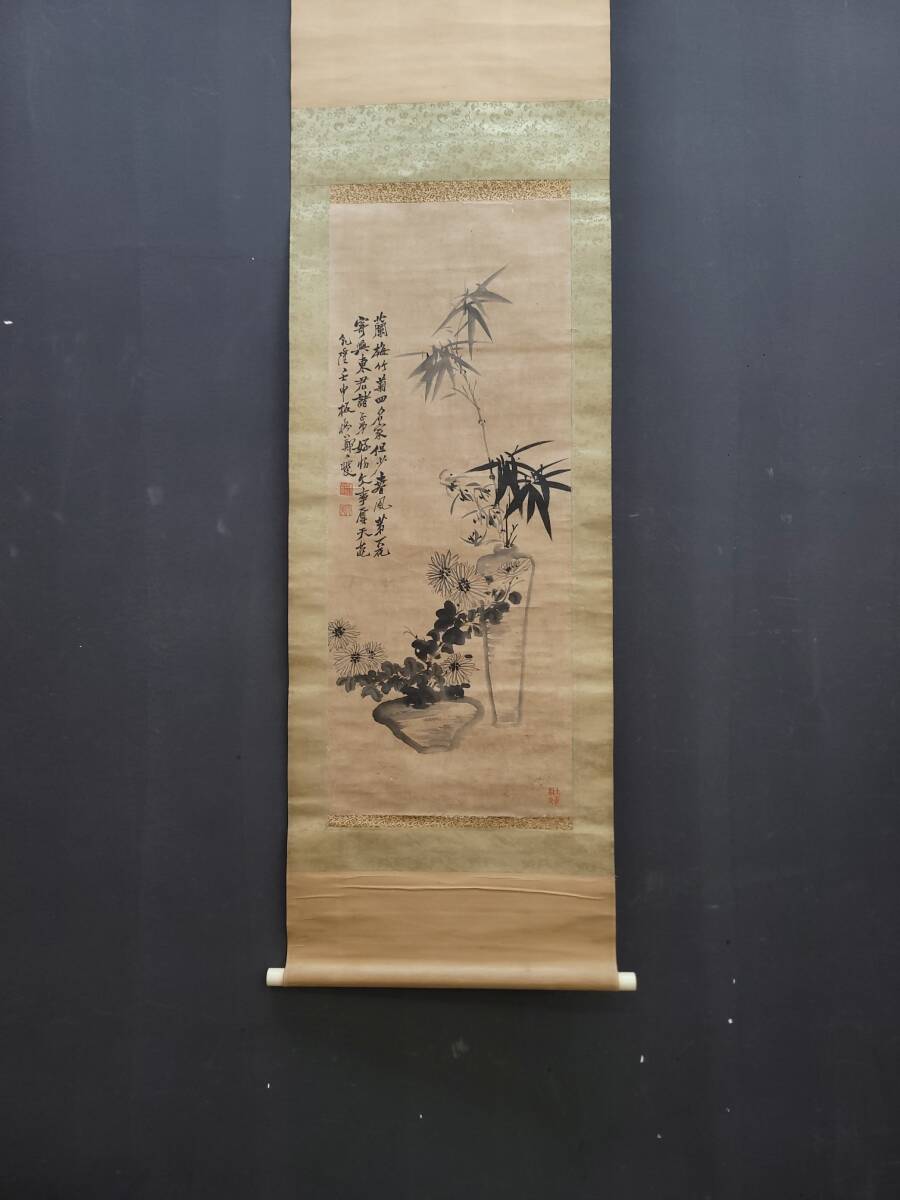 蘭梅竹菊四名家但少春風第一花
寄與東君諸子弟好將文事奪天葩
乾隆壬申板橋鄭燮